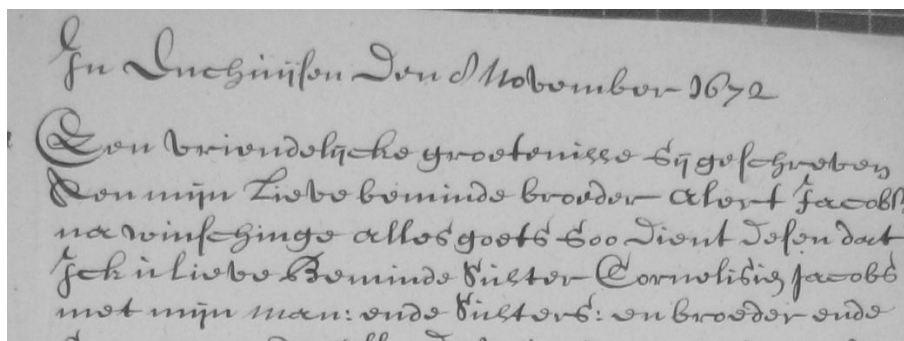 In Enchuijsen Den 8 November 1672
Een vriendelijcke groetenisse sij geschreven
Aen mijn Lieve beminde broeder Alert Jacobs
na winschinge alles goets soo dient desen dat
Ick u lieve Beminde Suster Cornelisie Jacobs
met mijn man: ende Susters: en broeder ende